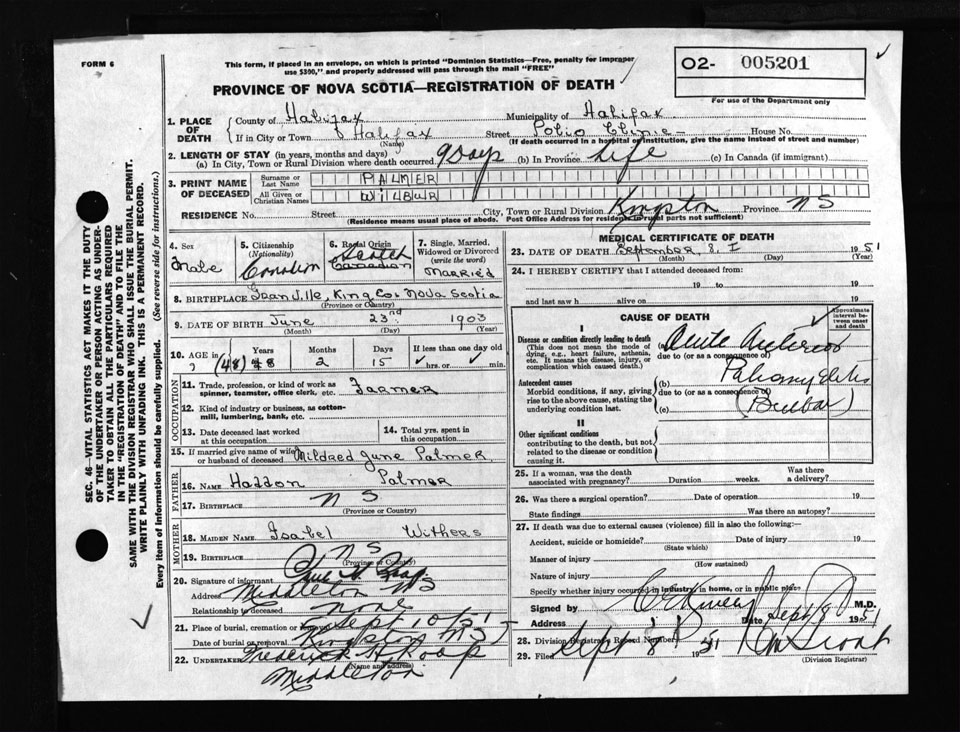 FORM 6
This form, if placed in an envelope, on which is printed "Dominion Statistics—Free, penalty for improper
use $300," and properly addressed will pass through the mail "FREE"
O2- 005201
For use of the Department only
PROVINCE OF NOVA SCOTIA—REGISTRATION OF DEATH
1. PLACE OF DEATH
County of Halifax Municipality of Halifax
If in City or Town Halifax (Name) Street Polio Clinic House No.
(If death occurred in a hospital or institution, give the name instead of street and number)
2. LENGTH OF STAY (in years, months and days)
(a) In City, Town or Rural Division where death occurred 9 Days (b) In Province Life (c) In Canada (if immigrant)
3. PRINT NAME OF DECEASED
Surname or Last Name PALMER
All Given or Christian Names WILBUR
RESIDENCE No. Street City, Town or Rural Division Kingston Province NS
(Residence means usual place of abode. Post Office Address for residents in rural parts not sufficient)
4. Sex Male
5. Citizenship (Nationality) Canadian
6. Racial Origin Scotch Canadian
7. Single, Married, Widowed or Divorced (write the word) Married
8. BIRTHPLACE Kings Co. Nova Scotia
(Province or Country)
9. DATE OF BIRTH June 23rd 1903
(Month) (Day) (Year)
10. AGE in (48) 48 Years 2 Months 15 Days If less than one day old hrs. or min.
OCCUPATION
11. Trade, profession, or kind of work as spinner, teamster, office clerk, etc. Farmer
12. Kind of industry or business, as cotton-mill, lumbering, bank, etc.
13. Date deceased last worked at this occupation
14. Total yrs. spent in this occupation
15. If married give name of wife or husband of deceased Mildred June Palmer
FATHER
16. NAME Haddon Palmer
17. BIRTHPLACE N S
(Province or Country)
MOTHER
18. MAIDEN NAME Isabel Withers
19. BIRTHPLACE N S
(Province or Country)
20. Signature of informant
Address Middleton NS
Relationship to deceased none
21. Place of burial, cremation or Sept 10/51
Date of burial or removal Kingston N S
22. UNDERTAKER Frederick H Roop
(Name and address)
Middleton
MEDICAL CERTIFICATE OF DEATH
23. DATE OF DEATH September, 8, 1951
(Month) (Day) (Year)
24. I HEREBY CERTIFY that I attended deceased from
19 to 19
and last saw h alive on 19
CAUSE OF DEATH
Approximate interval between onset and death
I
Disease or condition directly leading to death
(This does not mean the mode of dying, e.g., heart failure, asthenia, etc. It means the disease, injury, or complication which caused death.)
Acute Anterior
due to (or as a consequence of)
Antecedent causes
Morbid conditions, if any, giving rise to the above cause, stating the underlying condition last.
(b)
due to (or as a consequence of)
(c) (Bulbar)
II
Other significant conditions
contributing to the death, but not related to the disease or condition causing it.
25. If a woman, was the death associated with pregnancy? Duration weeks. Was there a delivery?
26. Was there a surgical operation? Date of operation 19
State findings Was there an autopsy?
27. If death was due to external causes (violence) fill in also the following:—
Accident, suicide or homicide? Date of injury 19
(State which)
Manner of injury
(How sustained)
Nature of injury
Specify whether injury occurred in industry, in home, or in public place
Signed by M.D.
Address Date Sept 8 1951
28. Division Registrar's Record Number
29. Filed Sept 8 1951
(Division Registrar)
SEC. 46—VITAL STATISTICS ACT MAKES IT THE DUTY
OF THE UNDERTAKER OR PERSON ACTING AS UNDER-
TAKER TO OBTAIN ALL THE PARTICULARS REQUIRED
IN THE "REGISTRATION OF DEATH" AND TO FILE THE
SAME WITH THE DIVISION REGISTRAR WHO SHALL ISSUE THE BURIAL PERMIT.
WRITE PLAINLY WITH UNFADING INK. THIS IS A PERMANENT RECORD.
Every item of information should be carefully supplied. (See reverse side for instructions.)